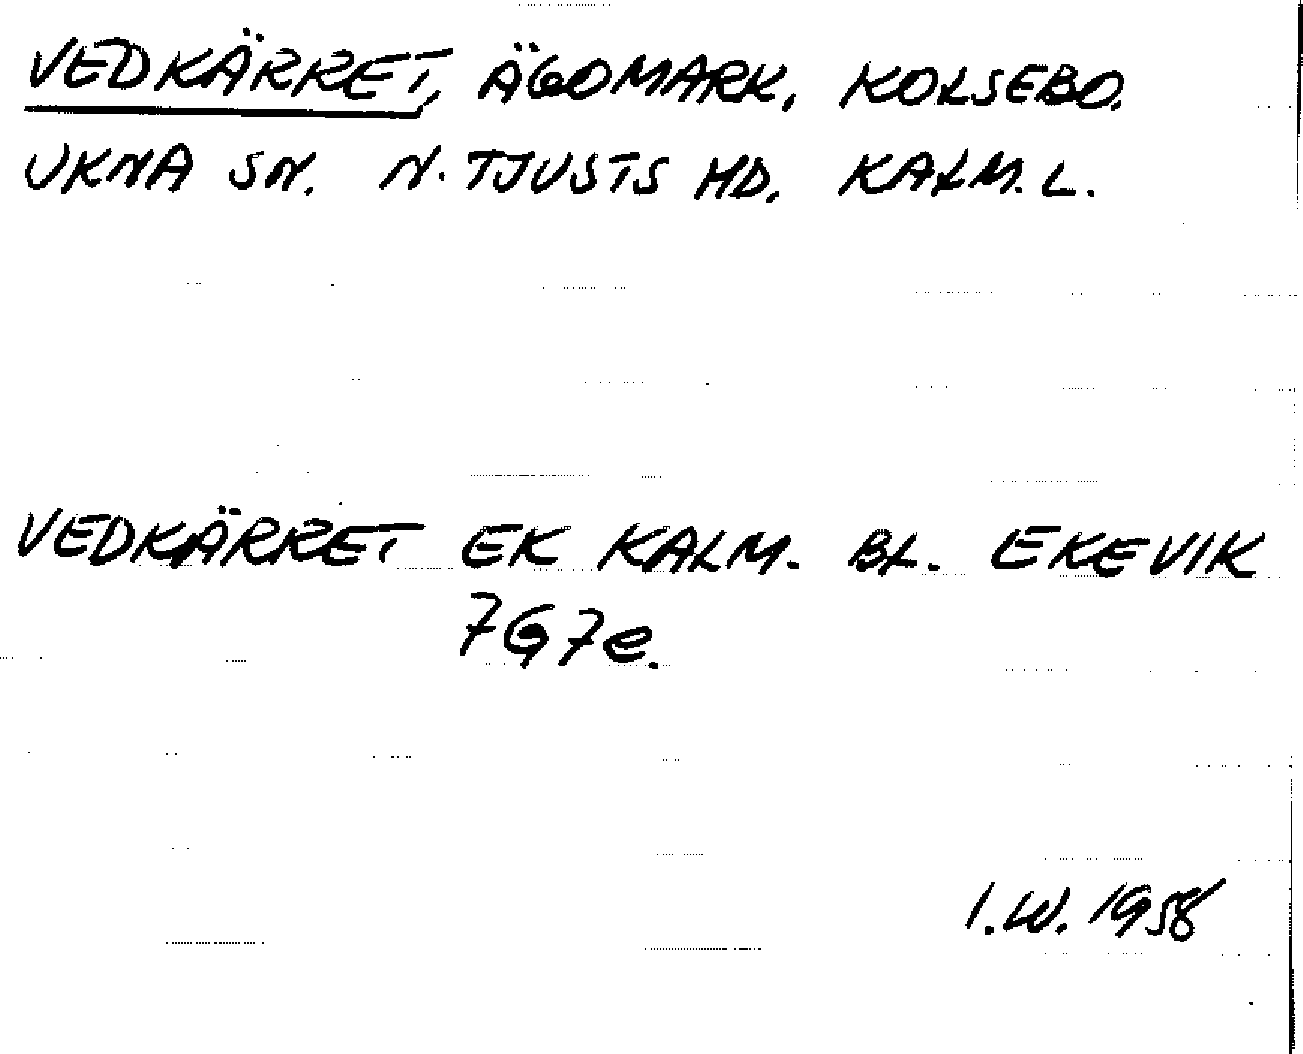 VEDKÄRRET, ÄGOMARK, KOLSEBO,
UKNA SN. N. TJUSTS HD. KALM. L.
VEDKÄRRET EK KALM. BL. EKEVIK
7G7e.
I.W. 1958